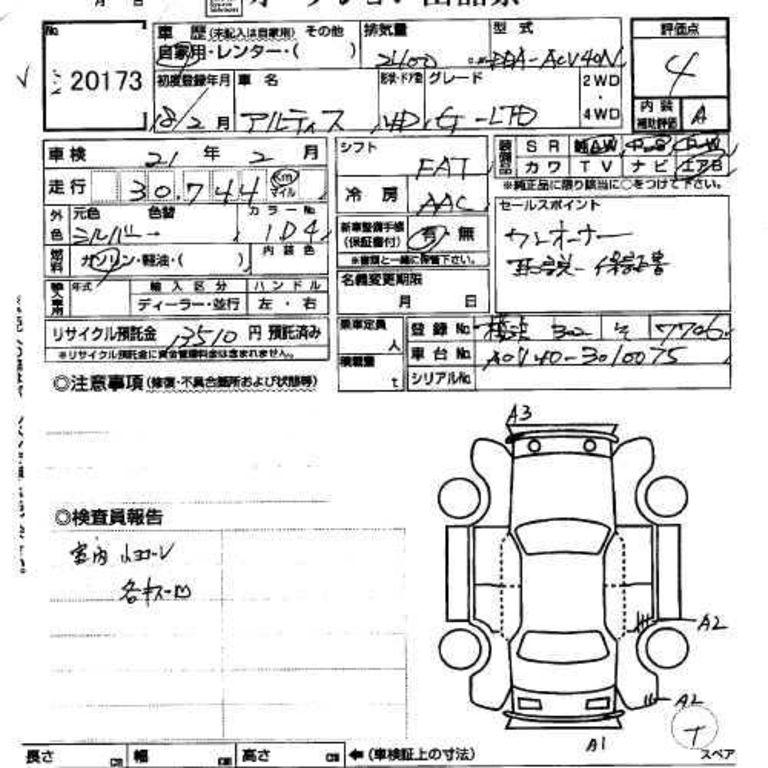 月 日
No. 20173
車歴 (未記入は自家用) その他
自家用・レンター・( )
排気量 2400
型式 DBA-ACV40N
評価点 4
初度登録年月 18/2月
車名 アルティス
形状・ドア数 4D
グレード G-LTD
2WD・4WD
内装補助評価 A
車検 21年 2月
走行 30,744 Km マイル
シフト FAT
冷房 AAC
装備品 SR 純AW P.S P.W
カワ TV ナビ エアB
※純正品に限り該当に○をつけて下さい。
外色 元色 シルバー 色替 → カラーNo. 1D4
燃料 ガソリン・軽油・( ) 内装色
新車整備手帳(保証書付) 有・無
※書類と一緒に保管下さい。
セールスポイント
ワンオーナー
取説-保証書
輸入車用 年式 輸入区分 ハンドル
ディーラー・並行 左・右
名義変更期限
月 日
リサイクル預託金 13510 円 預託済み
※リサイクル預託金に資金管理料金は含まれません。
乗車定員 人
積載量 t
登録No. 302 そ 7706
車台No. ACV40-3010075
シリアルNo.
◎注意事項(修復・不具合箇所および状態等)
◎検査員報告
室内
各キズ凹
A3
A2
A2
A1
T
スペア
長さ cm 幅 cm 高さ cm ←(車検証上の寸法)